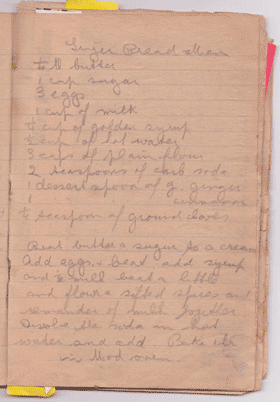 Ginger Bread Men
½ lb butter
1 cup sugar
3 eggs
1 cup of milk
½ cup of golden syrup
½ cup of hot water
3 cups of plain flour
2 teaspoons of carb soda
1 dessert spoon of g. ginger
1 cinnamon
½ teaspoon of ground cloves
Beat butter & sugar to a cream
Add eggs & beat, add syrup
and ½ milk beat a little
and flour & sifted spices and
remainder of milk together
Disolve the soda in hot
water and add. Bake
in Mod oven